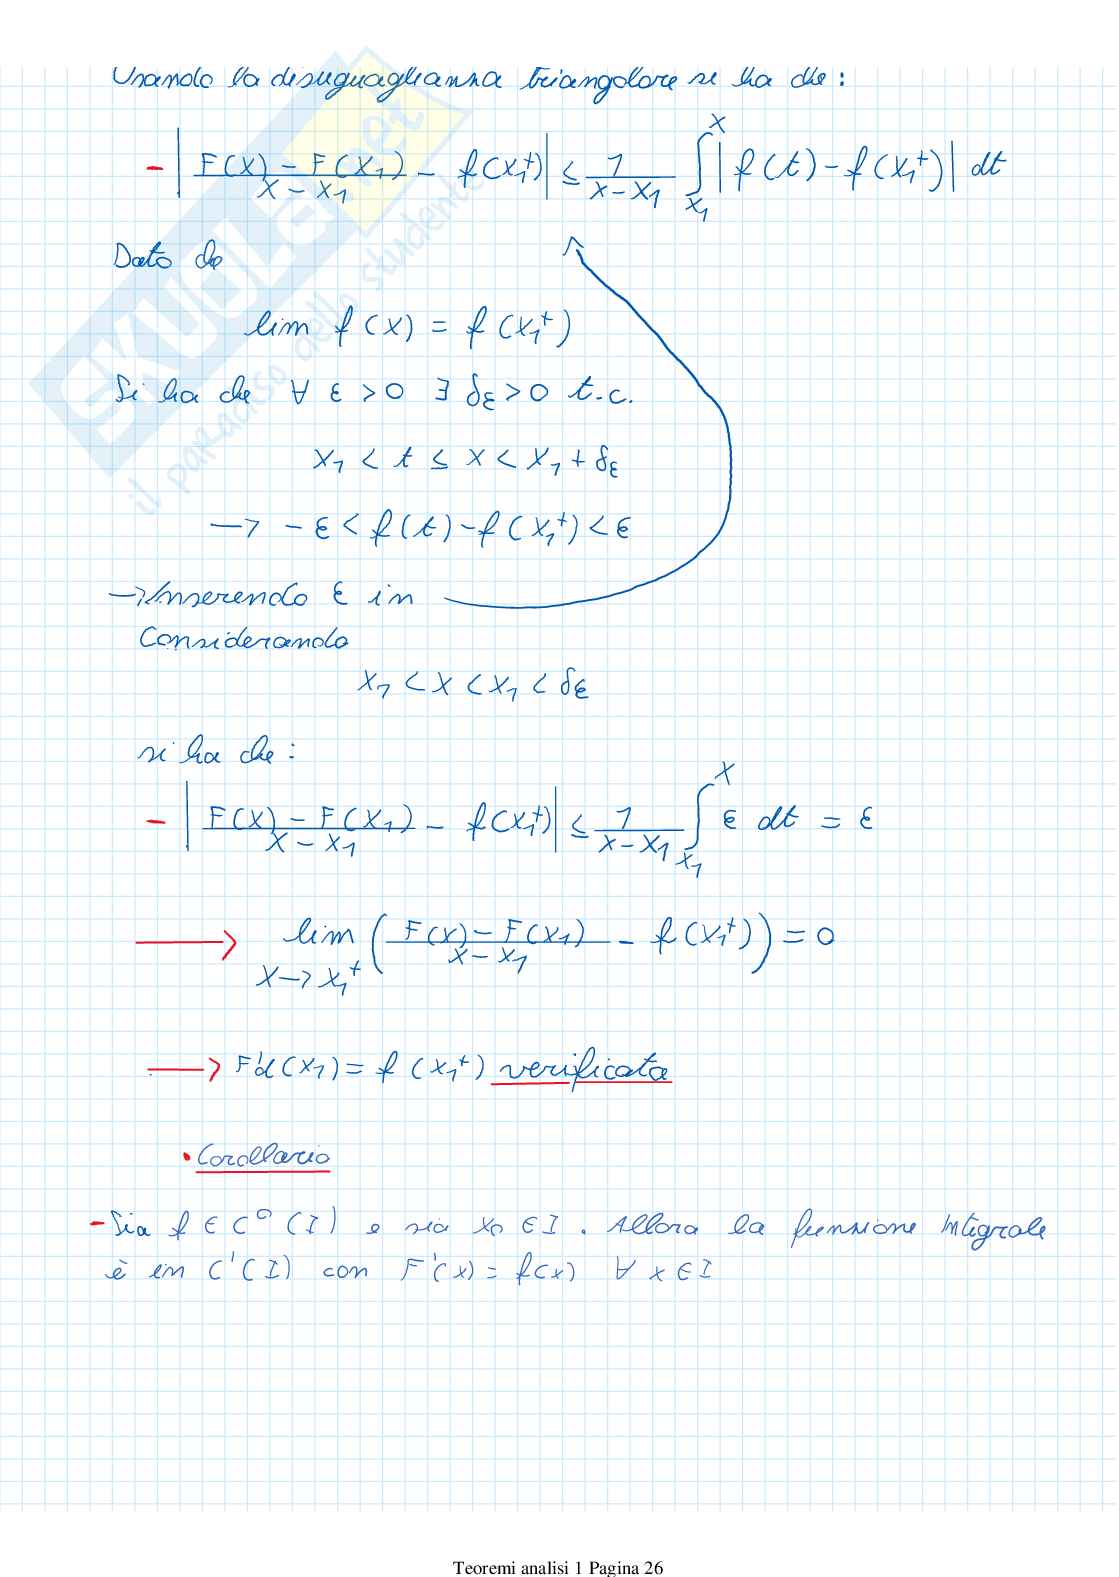 Usando la disuguaglianza triangolare si ha che:
- | F(x) - F(x₁) / x - x₁ - f(x₁⁺) | ≤ 1 / x - x₁ ∫_{x₁}^{x} | f(t) - f(x₁⁺) | dt
Dato che
lim f(x) = f(x₁⁺)
Si ha che ∀ ε > 0 ∃ δ_ε > 0 t.c.
x₁ < t ≤ x < x₁ + δ_ε
→ - ε < f(t) - f(x₁⁺) < ε
→ Inserendo ε in
Considerando
x₁ < x < x₁ < δ_ε
si ha che:
- | F(x) - F(x₁) / x - x₁ - f(x₁⁺) | ≤ 1 / x - x₁ ∫_{x₁}^{x} ε dt = ε
→ lim_{x → x₁⁺} ( F(x) - F(x₁) / x - x₁ - f(x₁⁺) ) = 0
→ F'd(x₁) = f(x₁⁺) verificata
• Corollario
- Sia f ∈ C⁰(I) e sia x₀ ∈ I. Allora la funzione Integrale
è in C'(I) con F'(x) = f(x) ∀ x ∈ I
SKUOLA.net
il paradiso dello studente
Teoremi analisi 1 Pagina 26